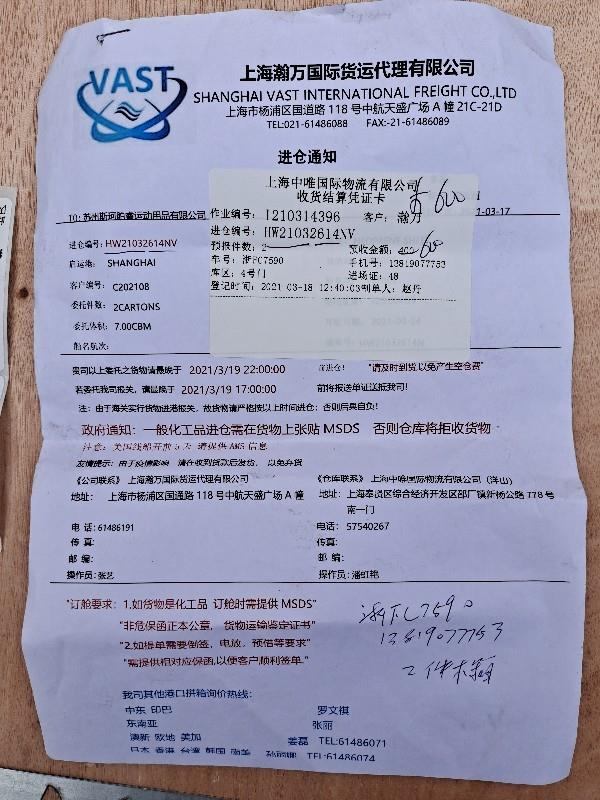 VAST
上海瀚万国际货运代理有限公司
SHANGHAI VAST INTERNATIONAL FREIGHT CO.,LTD
上海市杨浦区国道路 118 号中航天盛广场 A 幢 21C-21D
TEL:021-61486088 FAX:-21-61486089
进仓通知
上海中唯国际物流有限公司
收货结算凭证卡
600
TO: 苏州斯珂 运动用品有限公司
作业编号: I210314396 客户: 瀚万
-03-17
进仓编号: HW21032614NV
预报件数: 2 预收金额: 400 600
车号: 浙FC7590 手机号: 13819077753
库区: 4号门 进场证: 48
登记时间: 2021-03-18 12:40:03制单人: 赵丹
进仓编号: HW21032614NV
启运港: SHANGHAI
客户编号: C202108
委托件数: 2CARTONS
委托体积: 7.00CBM
船名航次:
贵司以上委托之货物请最晚于 2021/3/19 22:00:00 前进仓! "请及时到货,以免产生空仓费"
若委托我司报关, 请最晚于 2021/3/19 17:00:00 前将报送单证送抵我司!
注: 由于海关实行货物进港报关, 故货物请严格按以上时间进仓; 否则后果自负!
政府通知: 一般化工品进仓需在货物上张贴 MSDS 否则仓库将拒收货物
注意: 美国线船开前 5 天 请提供 AMS 信息
友情提示: 由于疫情影响, 请在收到货款后发货, 以免弃货
《公司联系》上海瀚万国际货运代理有限公司
地址: 上海市杨浦区国通路 118 号中航天盛广场 A 幢
电 话: 61486191
传 真:
邮 编:
操作员: 张艺
《仓库联系》上海中唯国际物流有限公司 (洋山)
地址: 上海奉贤区综合经济开发区邵厂镇新杨公路 778 号
南一门
电话: 57540267
传真:
邮 编:
操作员: 潘虹艳
"订舱要求: 1.如货物是化工品 订舱时需提供 MSDS"
"非危保函正本公章, 货物运输鉴定证书"
"2.如提单需要倒签, 电放, 预借等要求"
"需提供相对应保函,以便客户顺利签单."
浙FC7590
13819077753
2件木箱
我司其他港口拼箱询价热线:
中东 印巴 罗文祺
东南亚 张丽
澳新 欧地 美加 姜磊 TEL:61486071
日本 香港 台湾 韩国 南美 孙丽娜 TEL:61486074